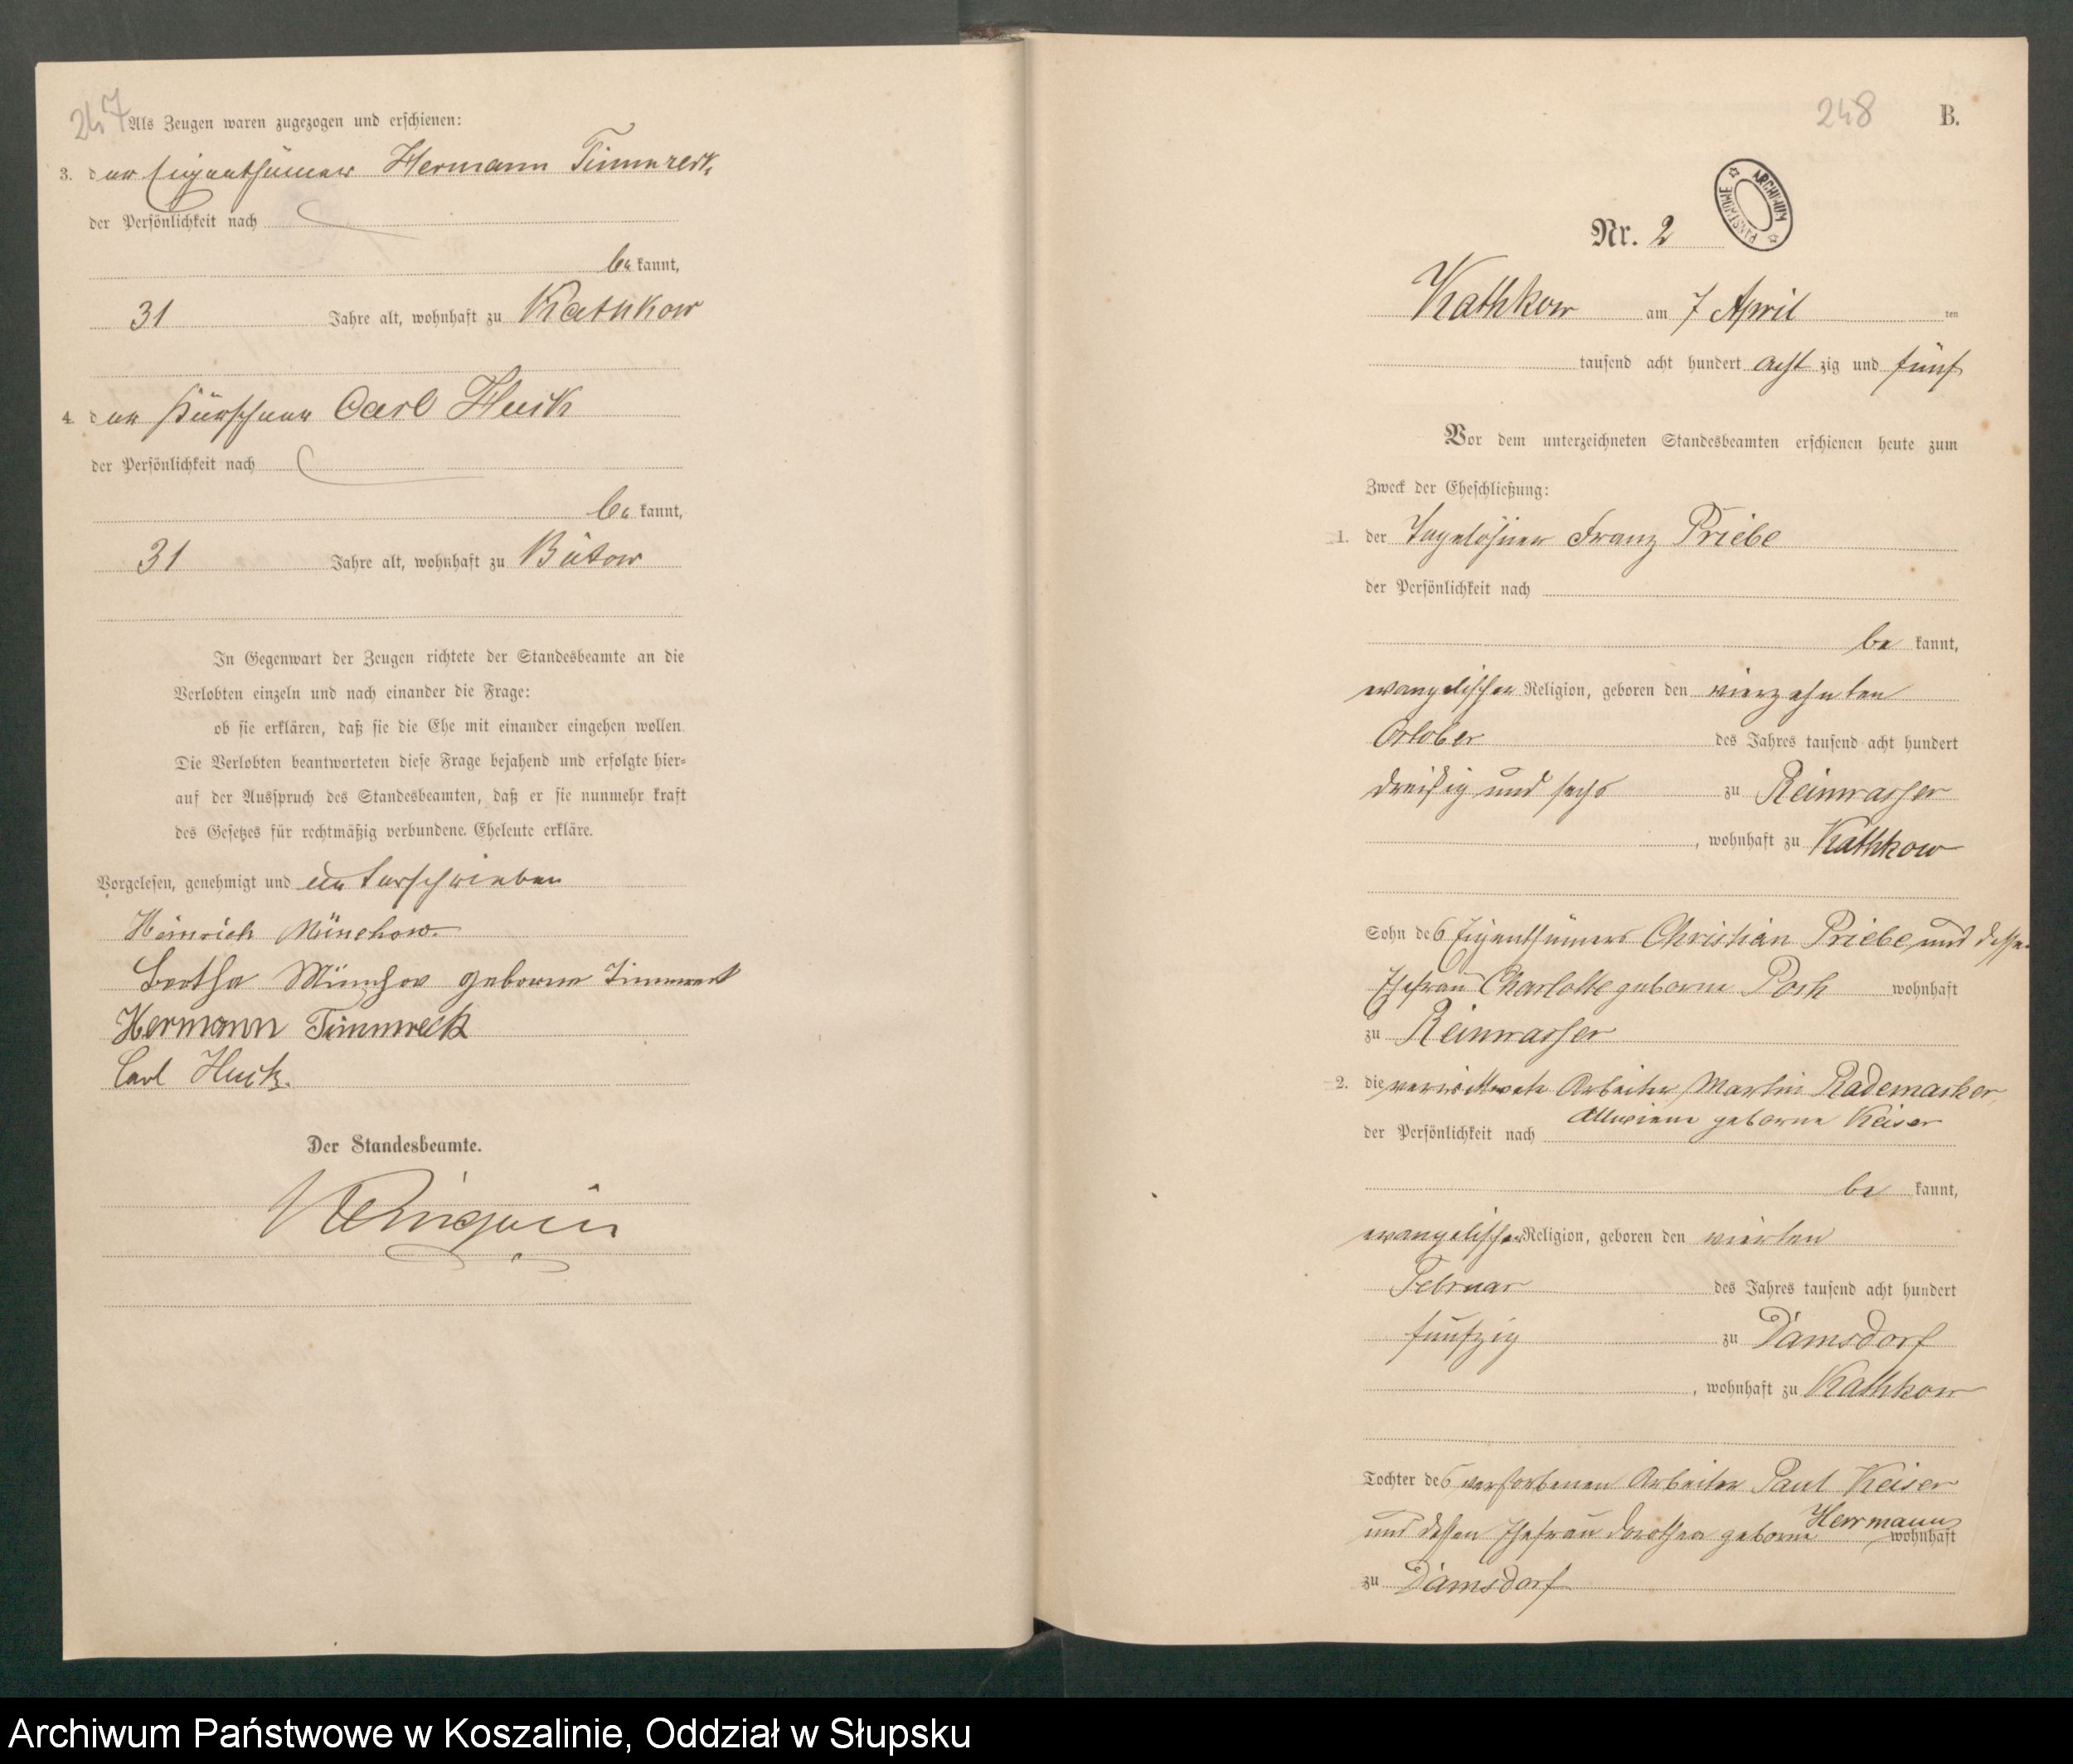 247
Als Zeugen waren zugezogen und erschienen:
3. der Eigenthümer Hermann Timmreck,
der Persönlichkeit nach
be kannt,
31 Jahre alt, wohnhaft zu Kathkow
4. der Kürschner Carl Huck
der Persönlichkeit nach
be kannt,
31 Jahre alt, wohnhaft zu Bütow
In Gegenwart der Zeugen richtete der Standesbeamte an die
Verlobten einzeln und nach einander die Frage:
ob sie erklären, daß sie die Ehe mit einander eingehen wollen.
Die Verlobten beantworteten diese Frage bejahend und erfolgte hier-
auf der Ausspruch des Standesbeamten, daß er sie nunmehr kraft
des Gesetzes für rechtmäßig verbundene Eheleute erkläre.
Vorgelesen, genehmigt und unterschrieben
Heinrich Münchow.
Bertha Münchow geborne Timmreck
Hermann Timmreck
Carl Huck.
Der Standesbeamte.
248
B.
ARCHIWUM PAŃSTWOWE
Nr. 2
Kathkow am 7 April ten
tausend acht hundert acht zig und fünf
Vor dem unterzeichneten Standesbeamten erschienen heute zum
Zweck der Eheschließung:
1. der Tagelöhner Franz Priebe
der Persönlichkeit nach
be kannt,
evangelischer Religion, geboren den vierzehnten
October des Jahres tausend acht hundert
dreißig und sechs zu Reinwasser
, wohnhaft zu Kathkow
Sohn des Eigenthümers Christian Priebe und dessen
Ehefrau Charlotte geborne Posh wohnhaft
zu Reinwasser
2. die verwittwete Arbeiter Martin Rademacker,
Allwiene geborne Keiser
der Persönlichkeit nach
be kannt,
evangelischer Religion, geboren den vierten
Februar des Jahres tausend acht hundert
fünfzig zu Damsdorf
, wohnhaft zu Kathkow
Tochter des verstorbenen Arbeiter Paul Keiser
und dessen Ehefrau Dorothea geborne Herrmann wohnhaft
zu Damsdorf
Archiwum Państwowe w Koszalinie, Oddział w Słupsku